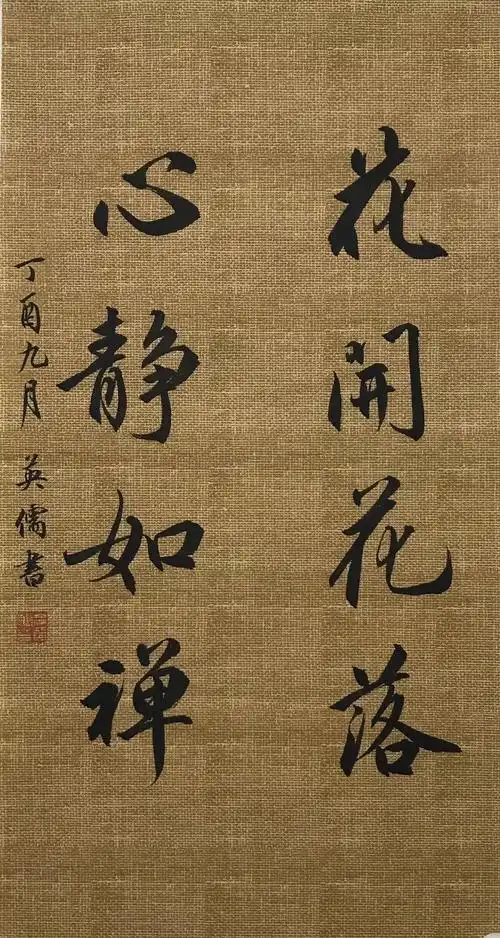 花開花落
心静如禅
丁酉九月 英儒書